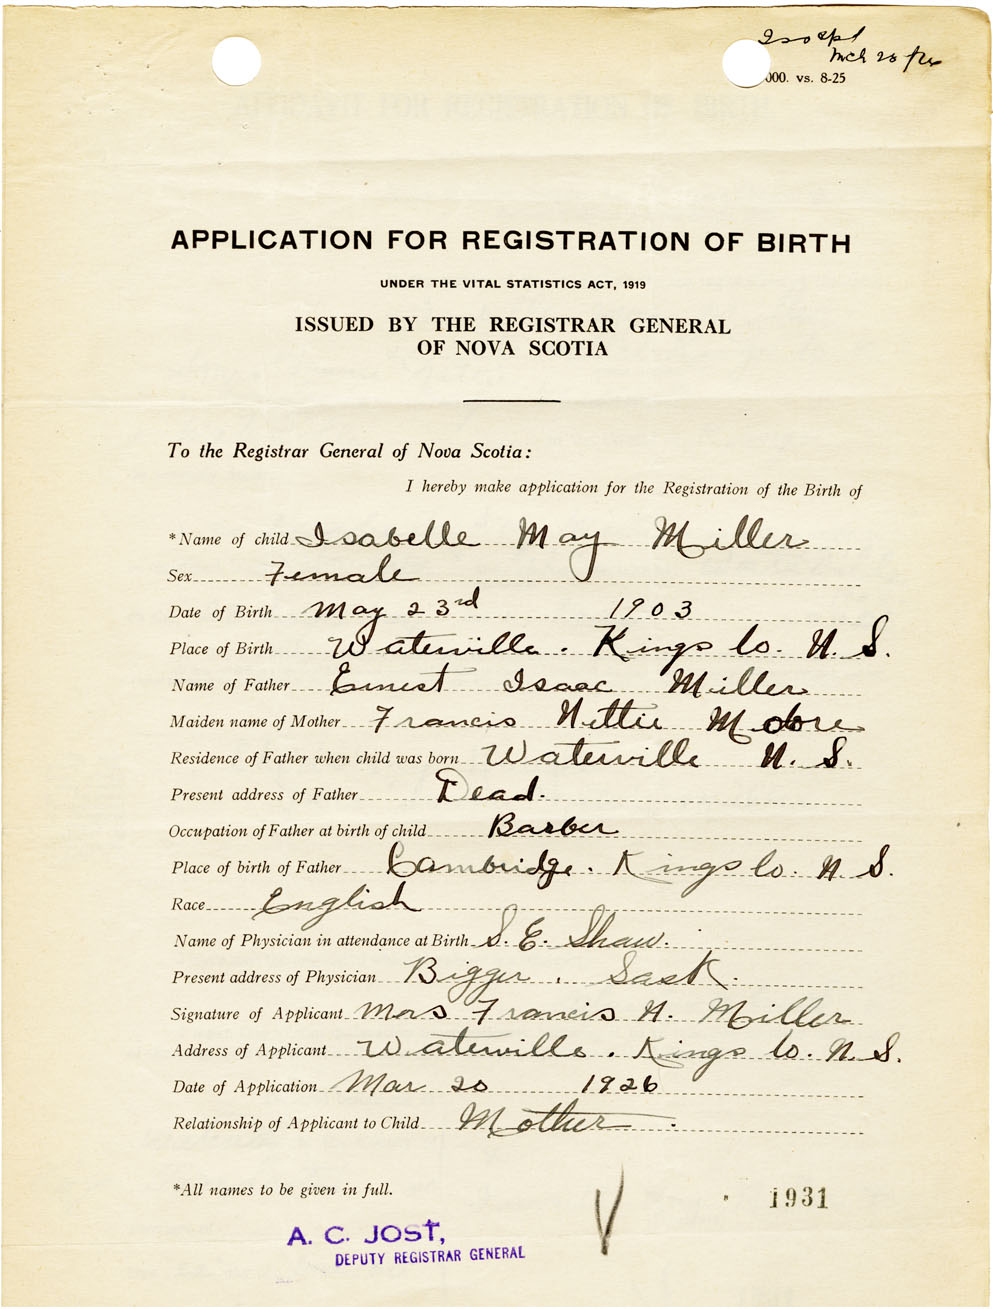 Mch 26
000. vs. 8-25
APPLICATION FOR REGISTRATION OF BIRTH
UNDER THE VITAL STATISTICS ACT, 1919
ISSUED BY THE REGISTRAR GENERAL
OF NOVA SCOTIA
To the Registrar General of Nova Scotia:
I hereby make application for the Registration of the Birth of
*Name of child Isabelle May Miller
Sex Female
Date of Birth May 23rd 1903
Place of Birth Waterville. Kings Co. N. S.
Name of Father Ernest Isaac Miller
Maiden name of Mother Francis Nettie Moore
Residence of Father when child was born Waterville N. S.
Present address of Father Dead.
Occupation of Father at birth of child Barber
Place of birth of Father Cambridge. Kings Co. N. S.
Race English
Name of Physician in attendance at Birth S. E. Shaw.
Present address of Physician Bigger, Sask.
Signature of Applicant Mrs Francis N. Miller
Address of Applicant Waterville. Kings Co. N. S.
Date of Application Mar 20 1926
Relationship of Applicant to Child Mother.
*All names to be given in full.
1931
A. C. JOST,
DEPUTY REGISTRAR GENERAL